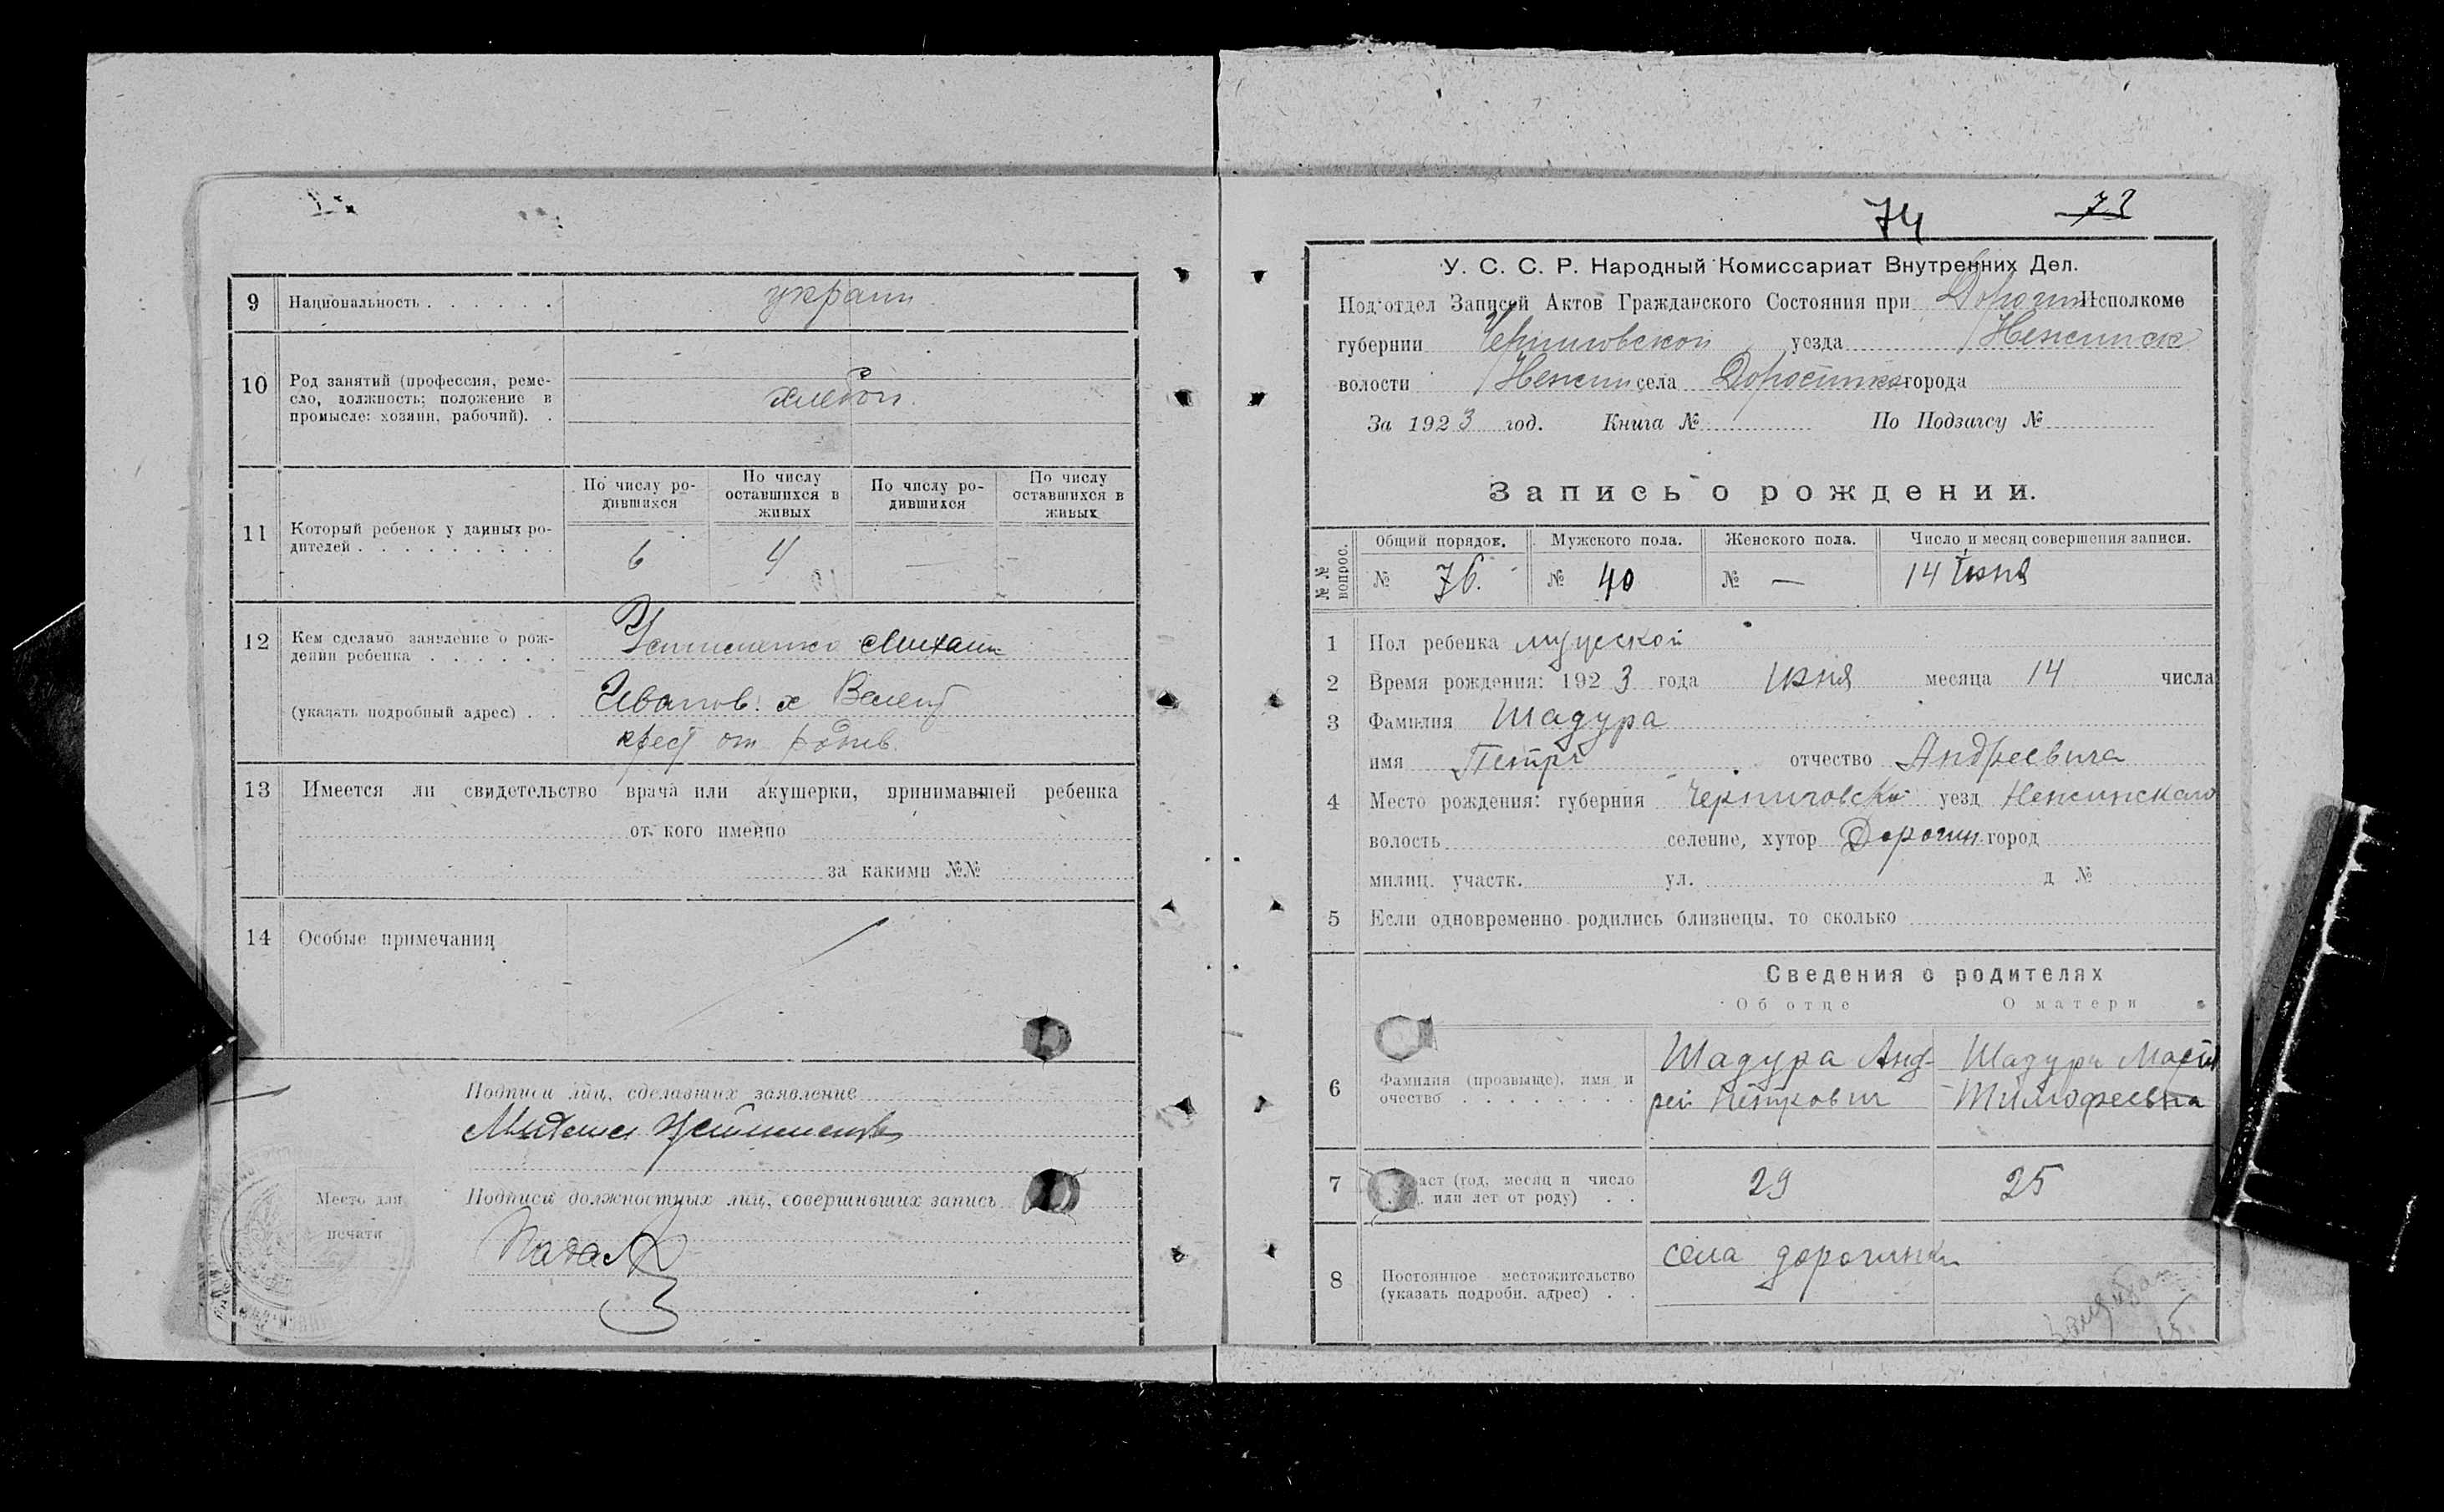 9 Национальность . . . . . . украин.
10 Род занятий (профессия, реме-
сло, должность; положение в
промысле: хозяин, рабочий). .
хлебоп.
11 Который ребенок у данных ро-
дителей . . . . . . . . .
По числу ро-
дившихся
По числу
оставшихся в
живых
По числу ро-
дившихся
По числу
оставшихся в
живых
6 4 —
12 Кем сделано заявление о рож-
дении ребенка . . . . . .
Устименко Михаил
(указать подробный адрес) . .
Иванов. х
крест от
13 Имеется ли свидетельство врача или акушерки, принимавшей ребенка
от кого именно
за какими №№
14 Особые примечания
Подписи лиц, сделавших заявление
Устименко
Место для
печати
Подписи должностных лиц, совершивших запись
74 73
У. С. С. Р. Народный Комиссариат Внутренних Дел.
Под'отдел Записей Актов Гражданского Состояния при Дорогин Исполкоме
губернии Черниговской уезда Нежинск
волости Нежин села города
За 1923 год. Книга № По Подзагсу №
Запись о рождении.
№№ вопрос.
Общий порядок. Мужского пола. Женского пола. Число и месяц совершения записи.
№ 76. № 40 № — 14 Июня
1 Пол ребенка мужеской
2 Время рождения: 1923 года Июня месяца 14 числа
3 Фамилия Шадура
имя Петръ отчество Андреевича
4 Место рождения: губерния Черниговско уезд Неженскаго
волость селение, хутор Дорогин город
милиц. участк. ул. д №
5 Если одновременно родились близнецы, то сколько
Сведения о родителях
Об отце О матери
6 Фамилия (прозвыще), имя и
очество . . . . . . . .
Шадура Анд-
рей Петрович
Шадура Мария
Тимофеевна
7 аст (год, месяц и число
или лет от роду) . .
29 25
8 Постоянное местожительство
(указать подробн. адрес) . .
села дорогинки
15